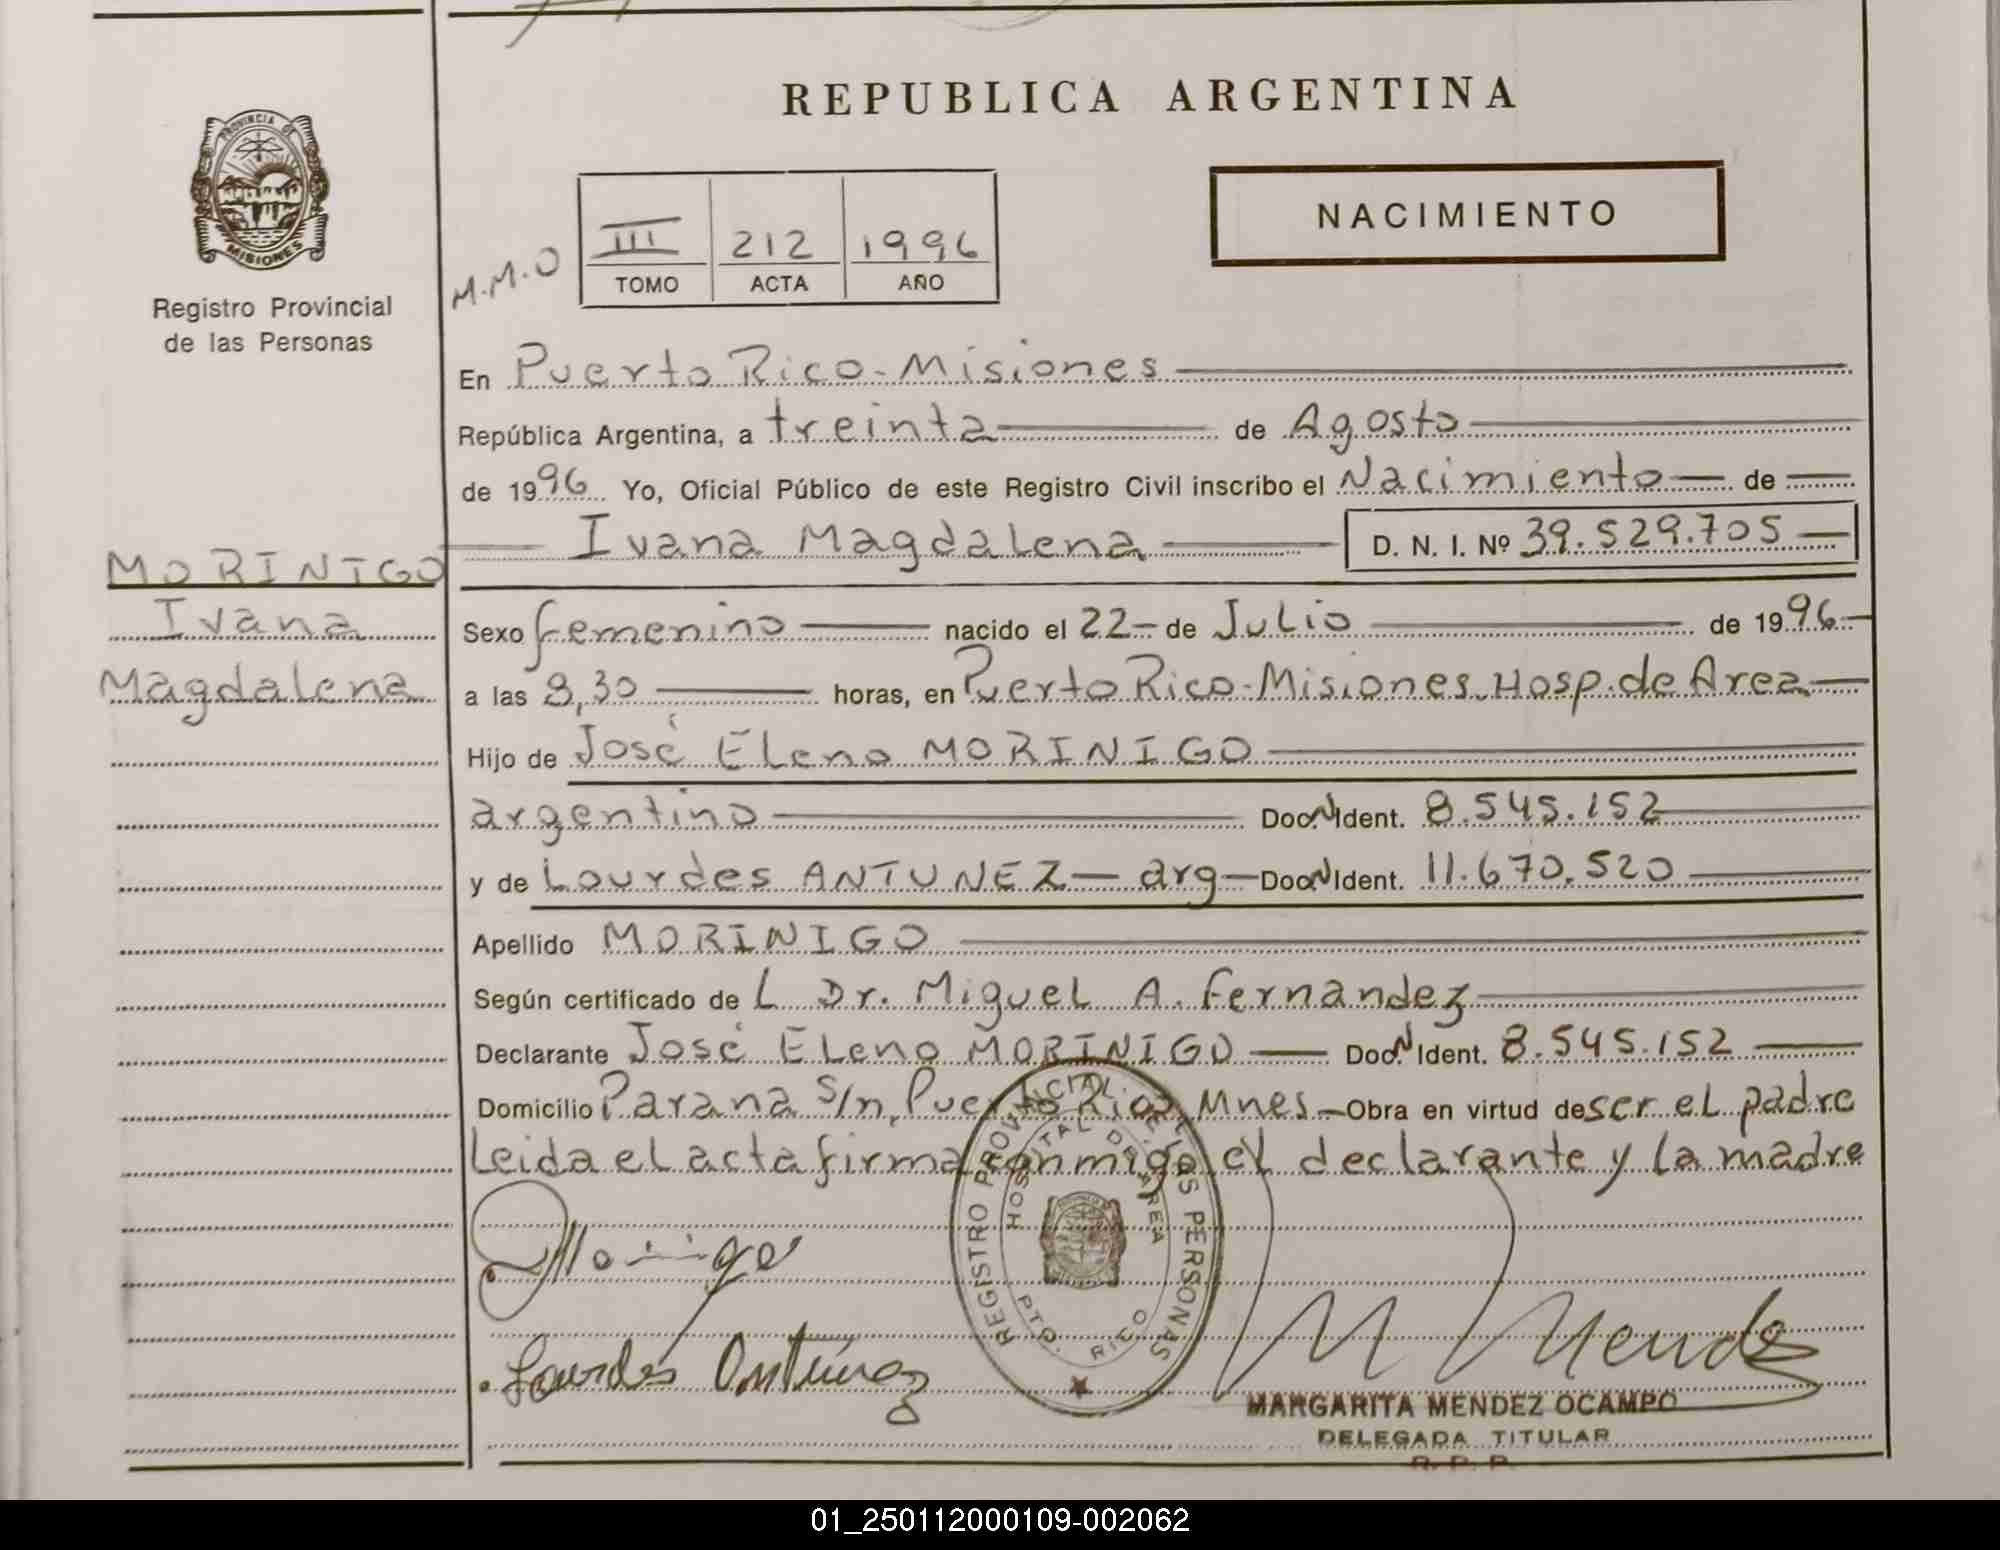 REPUBLICA ARGENTINA
PROVINCIA DE
MISIONES
Registro Provincial
de las Personas
NACIMIENTO
M.M.O
III 212 1996
TOMO ACTA AÑO
En Puerto Rico - Misiones
República Argentina, a treinta de Agosto
de 1996 Yo, Oficial Público de este Registro Civil inscribo el Nacimiento de
Ivana Magdalena D. N. I. Nº 39.529.705
MORINIGO
Ivana
Magdalena
Sexo femenino nacido el 22 de Julio de 1996
a las 8,30 horas, en Puerto Rico - Misiones Hosp. de Area
Hijo de José Eleno MORINIGO
argentino Doc. N Ident. 8.545.152
y de Lourdes ANTUNEZ arg Doc. N Ident. 11.670.520
Apellido MORINIGO
Según certificado de L Dr. Miguel A. Fernandez
Declarante José Eleno MORINIGO Doc. N Ident. 8.545.152
Domicilio Parana s/n, Puerto Rico, Mnes. Obra en virtud de ser el padre
Leida el acta firma conmigo el declarante y la madre
REGISTRO PROVINCIAL DE LAS PERSONAS
HOSPITAL DE AREA
PTO. RICO
Lourdes Antúnez
M Mendez
MARGARITA MENDEZ OCAMPO
DELEGADA TITULAR
R. P. P.
01_250112000109-002062